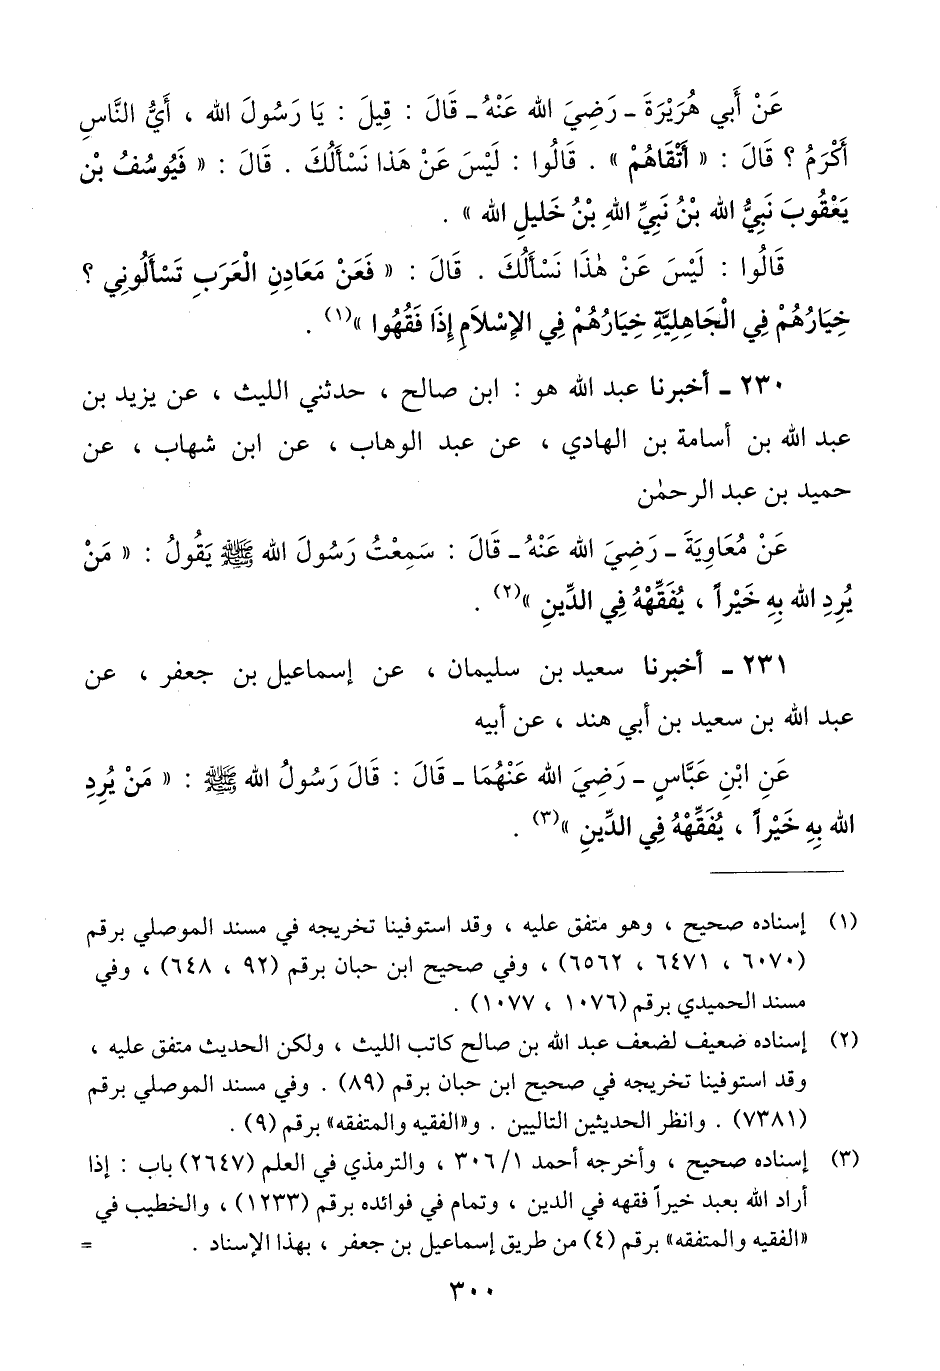 عَنْ أَبي هُرَيْرَةَ ـ رَضِيَ الله عَنْهُ ـ قَالَ : قِيلَ : يَا رَسُولَ الله ، أَيُّ النَّاسِ
أَكْرَمُ ؟ قَالَ : « أَتْقَاهُمْ » . قَالُوا : لَيْسَ عَنْ هَذا نَسْأَلُكَ . قَالَ : « فَيُوسُفُ بْن
يَعْقُوبَ نَبِيُّ الله بْنُ نَبِيِّ اللهِ بْنُ خَليلِ الله » .
قَالُوا : لَيْسَ عَنْ هٰذَا نَسْأَلُكَ . قَالَ : « فَعَنْ مَعَادِنِ الْعَرَبِ تَسْأَلُونِي ؟
خِيَارُهُمْ فِي الْجَاهِلِيَّةِ خِيَارُهُمْ فِي الإِسْلاَمِ إِذَا فَقُهُوا »(١) .
٢٣٠ ـ أخبرنا عبد الله هو : ابن صالح ، حدثني الليث ، عن يزيد بن
عبد الله بن أسامة بن الهادي ، عن عبد الوهاب ، عن ابن شهاب ، عن
حميد بن عبد الرحمٰن
عَنْ مُعَاوِيَةَ ـ رَضِيَ الله عَنْهُ ـ قَالَ : سَمِعْتُ رَسُولَ الله ﷺ يَقُولُ : « مَنْ
يُرِدِ الله بِهِ خَيْراً ، يُفَقِّهْهُ فِي الدِّينِ »(٢) .
٢٣١ ـ أخبرنا سعيد بن سليمان ، عن إسماعيل بن جعفر ، عن
عبد الله بن سعيد بن أبي هند ، عن أبيه
عَنِ ابْنِ عَبَّاسٍ ـ رَضِيَ الله عَنْهُمَا ـ قَالَ : قَالَ رَسُولُ الله ﷺ : « مَنْ يُرِدِ
الله بِهِ خَيْراً ، يُفَقِّهْهُ فِي الدِّينِ »(٣) .
(١) إسناده صحيح ، وهو متفق عليه ، وقد استوفينا تخريجه في مسند الموصلي برقم
(٦٠٧٠ ، ٦٤٧١ ، ٦٥٦٢) ، وفي صحيح ابن حبان برقم (٩٢ ، ٦٤٨) ، وفي
مسند الحميدي برقم (١٠٧٦ ، ١٠٧٧) .
(٢) إسناده ضعيف لضعف عبد الله بن صالح كاتب الليث ، ولكن الحديث متفق عليه ،
وقد استوفينا تخريجه في صحيح ابن حبان برقم (٨٩) . وفي مسند الموصلي برقم
(٧٣٨١) . وانظر الحديثين التاليين . و«الفقيه والمتفقه» برقم (٩) .
(٣) إسناده صحيح ، وأخرجه أحمد ١/ ٣٠٦ ، والترمذي في العلم (٢٦٤٧) باب : إذا
أراد الله بعبد خيراً فقهه في الدين ، وتمام في فوائده برقم (١٢٣٣) ، والخطيب في
«الفقيه والمتفقه» برقم (٤) من طريق إسماعيل بن جعفر ، بهذا الإسناد . =
٣٠٠